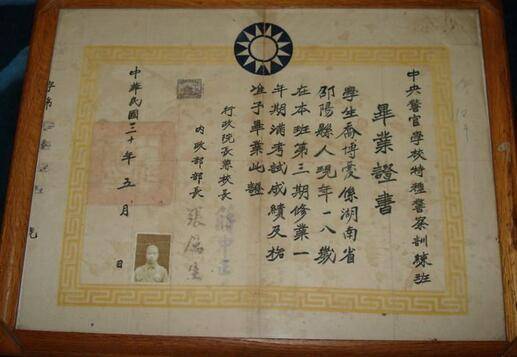 中央警官學校特種警察訓練班
畢業證書
學生喬博係湖南省
邵陽縣人現年一八歲
在本班第三期修業一
年期滿考試成績及格
准予畢業此證
行政院長兼校長 蔣中正
內政部部長 張厲生
中華民國三十年五月 日